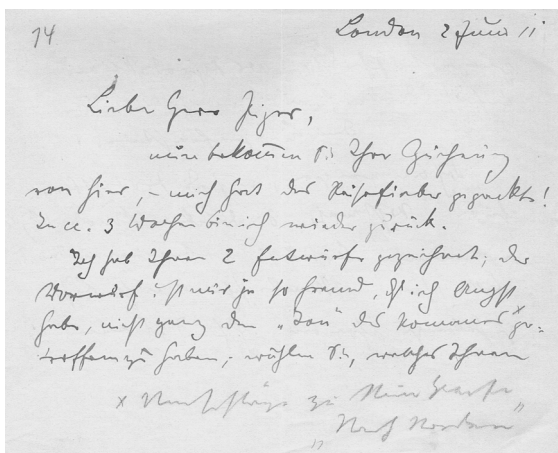 14
London 2 Juni 11
Lieber Herr Jiger,
nun bekommen Sie Ihre Zeichnung
von hier, – mich hat das Reisefieber gepackt!
In cc. 3 Wochen bin ich wieder zurück.
Ich hab Ihnen 2 Entwürfe gezeichnet; der
Vorwurf ist mir ja so fremd, ich Angst
habe, nicht ganz den „Ton" des Romanes x ge-
troffen zu haben, wählen Sie, welches Ihnen
x zu
„Nach Norden"